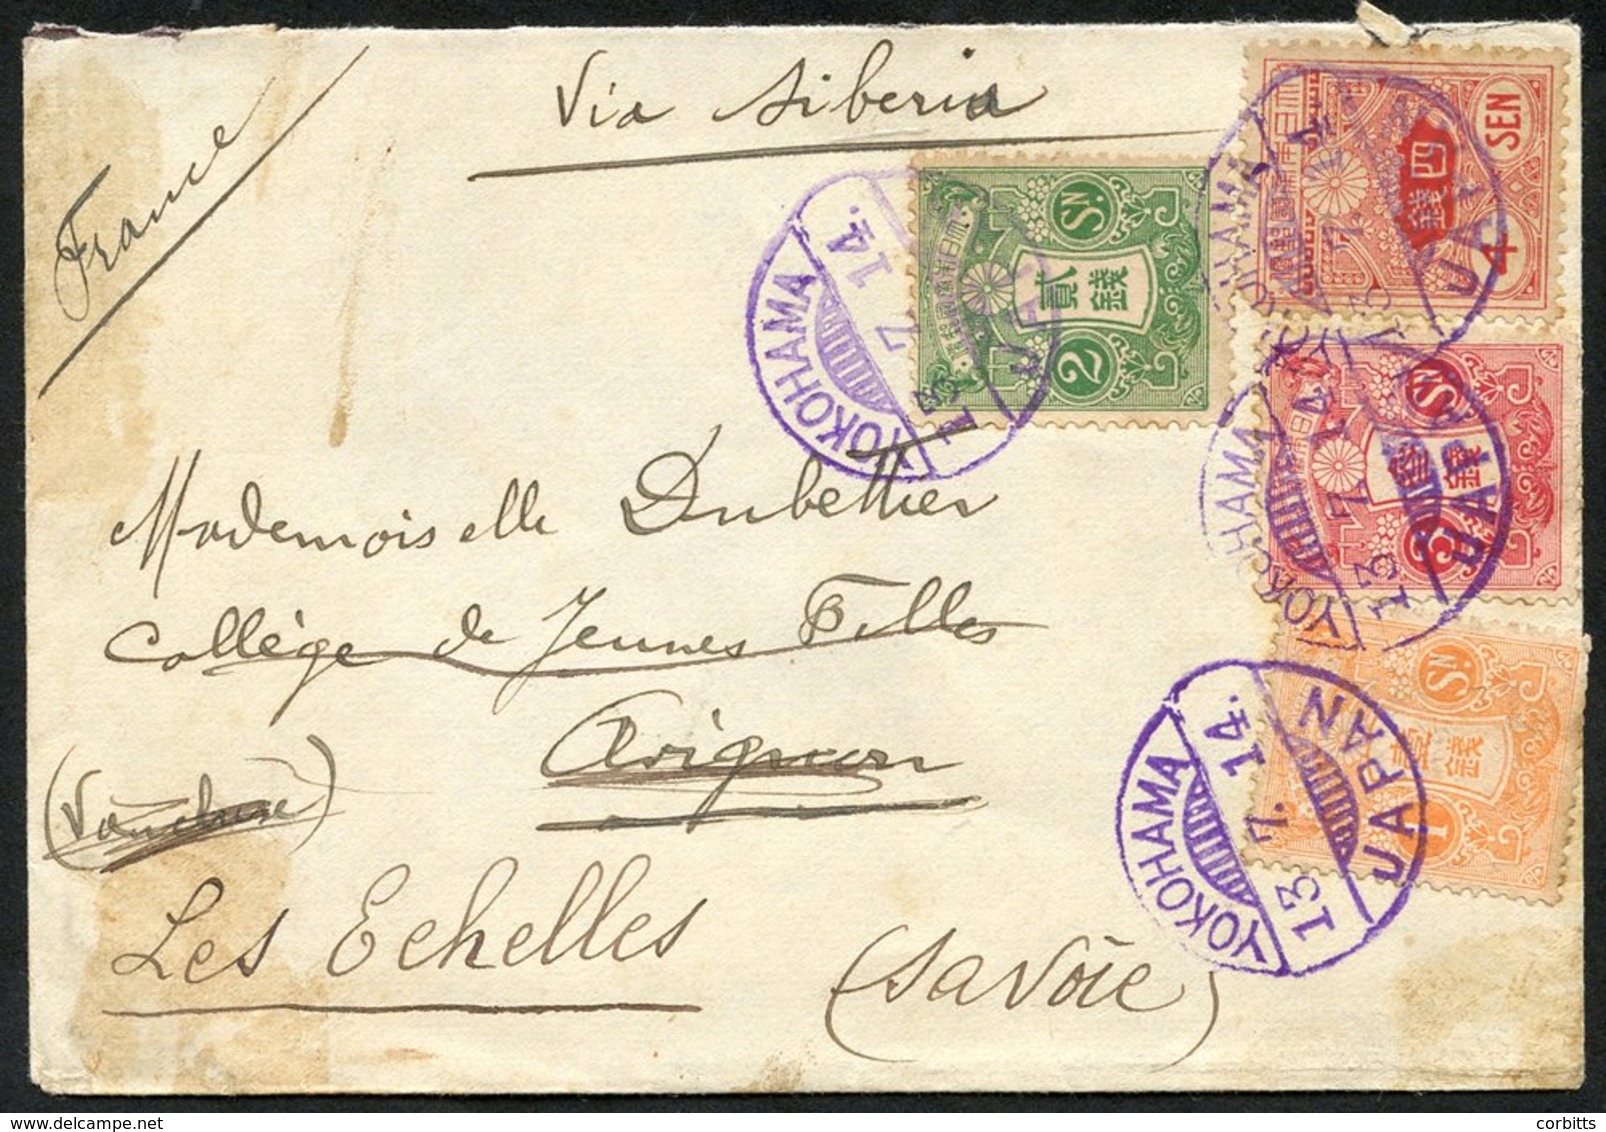 Via Siberia
France
4 SEN
四錢
SN. 2
貳錢
YOKOHAMA 13. 7. 14. JAPAN
YOKOHAMA 13. 7. 14. JAPAN
SN. 3
YOKOHAMA 13. 7. 14. JAPAN
SN. 1
壹錢
YOKOHAMA 13. 7. 14. JAPAN
Mademoiselle Dubettier
Collège de Jeunes Filles
Avignon
(Vaucluse)
Les Echelles
(Savoie)
corbitts
www.delcampe.net